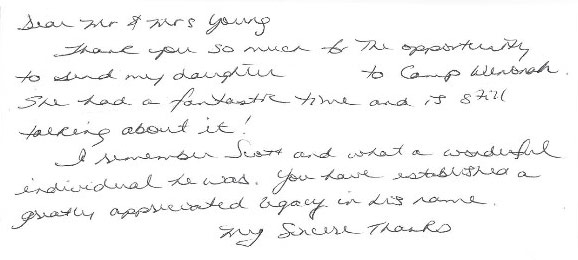 Dear Mr & Mrs Young
Thank you so much for The opportunity
to send my daughter to Camp Wenonah.
She had a fantastic time and is still
talking about it!
I remember Scott and what a wonderful
individual he was. You have established a
greatly appreciated legacy in his name.
My Sincere Thanks